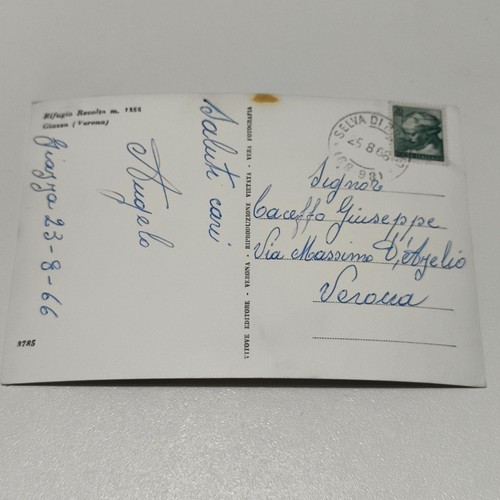 Rifugio Revolto m. 1336
Giazza (Verona)
Giazza 23-8-66
Angelo
Saluti cari
VITOVE EDITORE - VERONA - RIPRODUZIONE VIETATA - VERA FOTOGRAFIA
SELVA DI
25.8.66
Signor
Caceffo Giuseppe
Via Massimo D'Azelio
Verona
3725